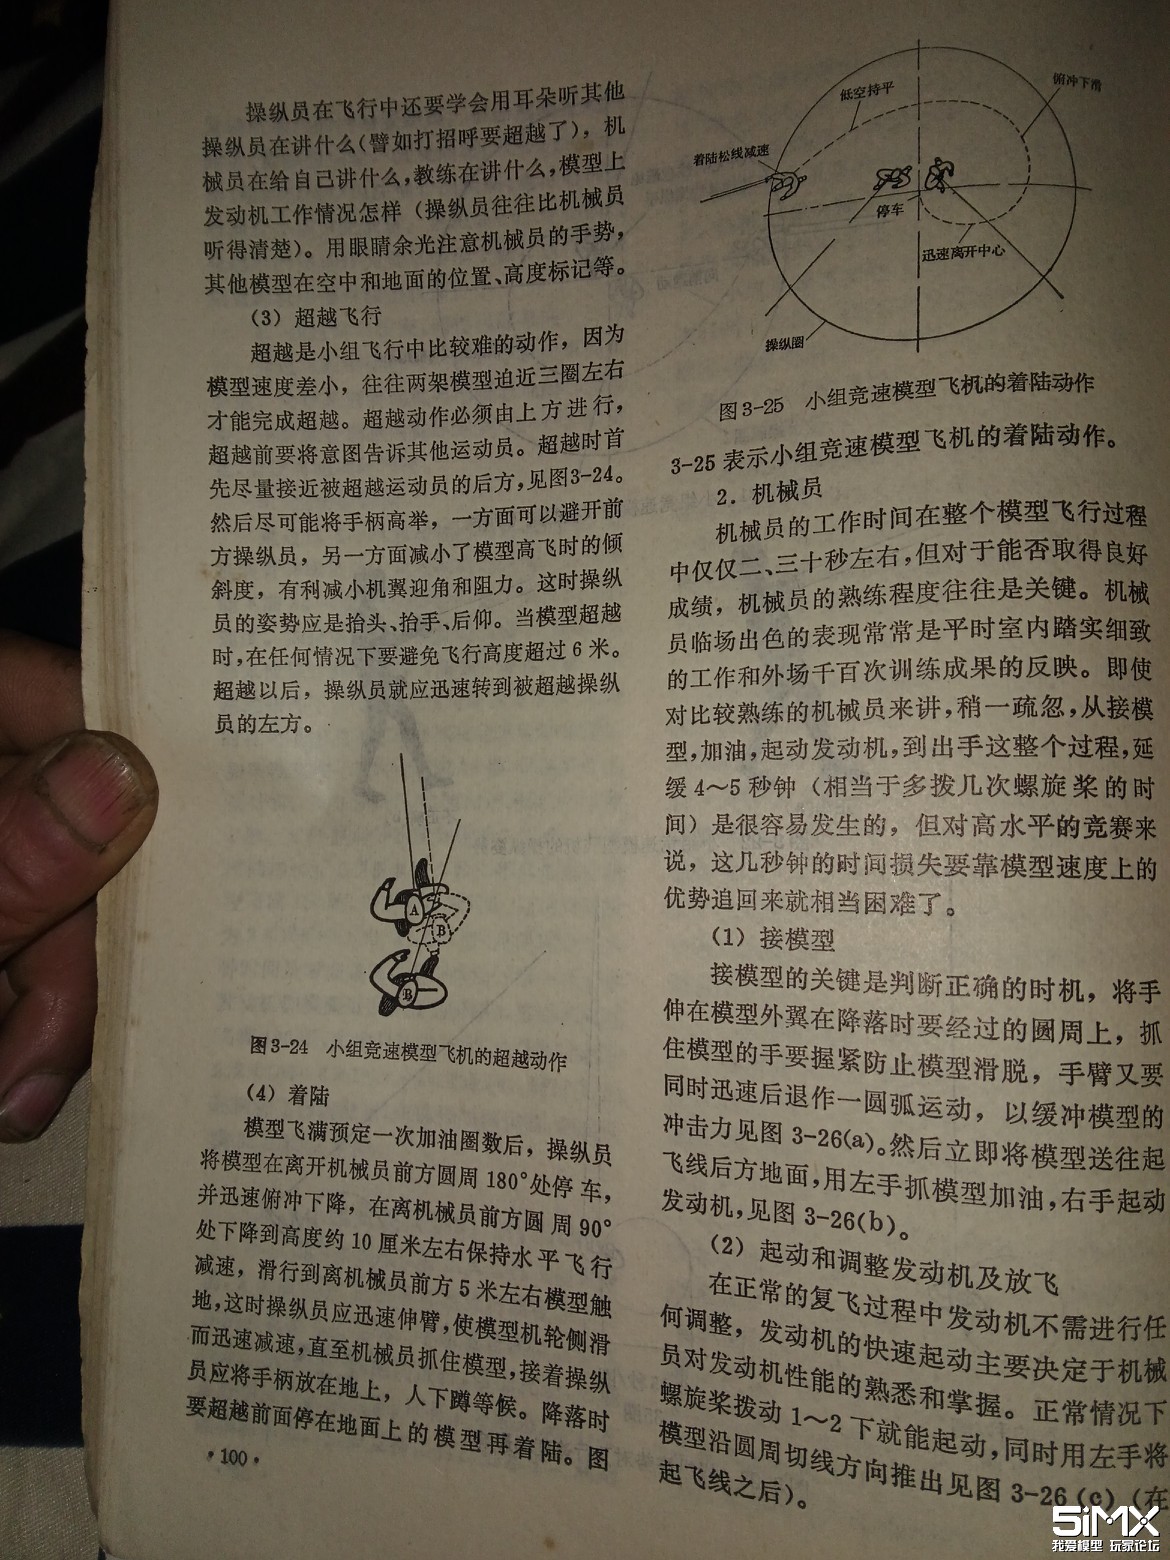 操纵员在飞行中还要学会用耳朵听其他
操纵员在讲什么(譬如打招呼要超越了)，机
械员在给自己讲什么,教练在讲什么,模型上
发动机工作情况怎样（操纵员往往比机械员
听得清楚)。用眼睛余光注意机械员的手势，
其他模型在空中和地面的位置、高度标记等。
（3）超越飞行
超越是小组飞行中比较难的动作，因为
模型速度差小，往往两架模型迫近三圈左右
才能完成超越。超越动作必须由上方进行，
超越前要将意图告诉其他运动员。超越时首
先尽量接近被超越运动员的后方,见图3-24。
然后尽可能将手柄高举，一方面可以避开前
方操纵员，另一方面减小了模型高飞时的倾
斜度，有利减小机翼迎角和阻力。这时操纵
员的姿势应是抬头、抬手、后仰。当模型超越
时,在任何情况下要避免飞行高度超过6米。
超越以后，操纵员就应迅速转到被超越操纵
员的左方。
A
B
B
图3-24 小组竞速模型飞机的超越动作
（4）着陆
模型飞满预定一次加油圈数后，操纵员
将模型在离开机械员前方圆周180°处停车，
并迅速俯冲下降，在离机械员前方圆周90°
处下降到高度约10厘米左右保持水平飞行
减速，滑行到离机械员前方5米左右模型触
地,这时操纵员应迅速伸臂,使模型机轮侧滑
而迅速减速,直至机械员抓住模型,接着操纵
员应将手柄放在地上，人下蹲等候。降落时
要超越前面停在地面上的模型再着陆。图
·100·
俯冲下滑
低空持平
着陆松线减速
停车
迅速离开中心
操纵圈
图3-25 小组竞速模型飞机的着陆动作
3-25表示小组竞速模型飞机的着陆动作。
2．机械员
机械员的工作时间在整个模型飞行过程
中仅仅二、三十秒左右,但对于能否取得良好
成绩，机械员的熟练程度往往是关键。机械
员临场出色的表现常常是平时室内踏实细致
的工作和外场千百次训练成果的反映。即使
对比较熟练的机械员来讲,稍一疏忽,从接模
型,加油,起动发动机,到出手这整个过程,延
缓4～5秒钟（相当于多拨几次螺旋桨的时
间）是很容易发生的，但对高水平的竞赛来
说，这几秒钟的时间损失要靠模型速度上的
优势追回来就相当困难了。
（1）接模型
接模型的关键是判断正确的时机，将手
伸在模型外翼在降落时要经过的圆周上，抓
住模型的手要握紧防止模型滑脱，手臂又要
同时迅速后退作一圆弧运动，以缓冲模型的
冲击力见图3-26(a)。然后立即将模型送往起
飞线后方地面,用左手抓模型加油,右手起动
发动机,见图3-26(b)。
（2）起动和调整发动机及放飞
在正常的复飞过程中发动机不需进行任
何调整，发动机的快速起动主要决定于机械
员对发动机性能的熟悉和掌握。正常情况下
螺旋桨拨动1～2下就能起动,同时用左手将
模型沿圆周切线方向推出见图3-26(c)（在
起飞线之后)。
5iMX
我爱模型 玩家论坛